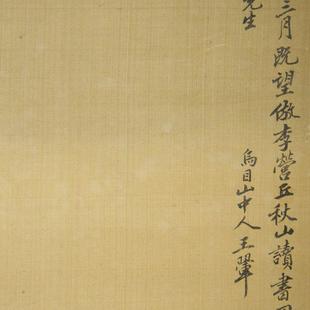 三月既望倣李營丘秋山讀書
先生
烏目山中人王翬